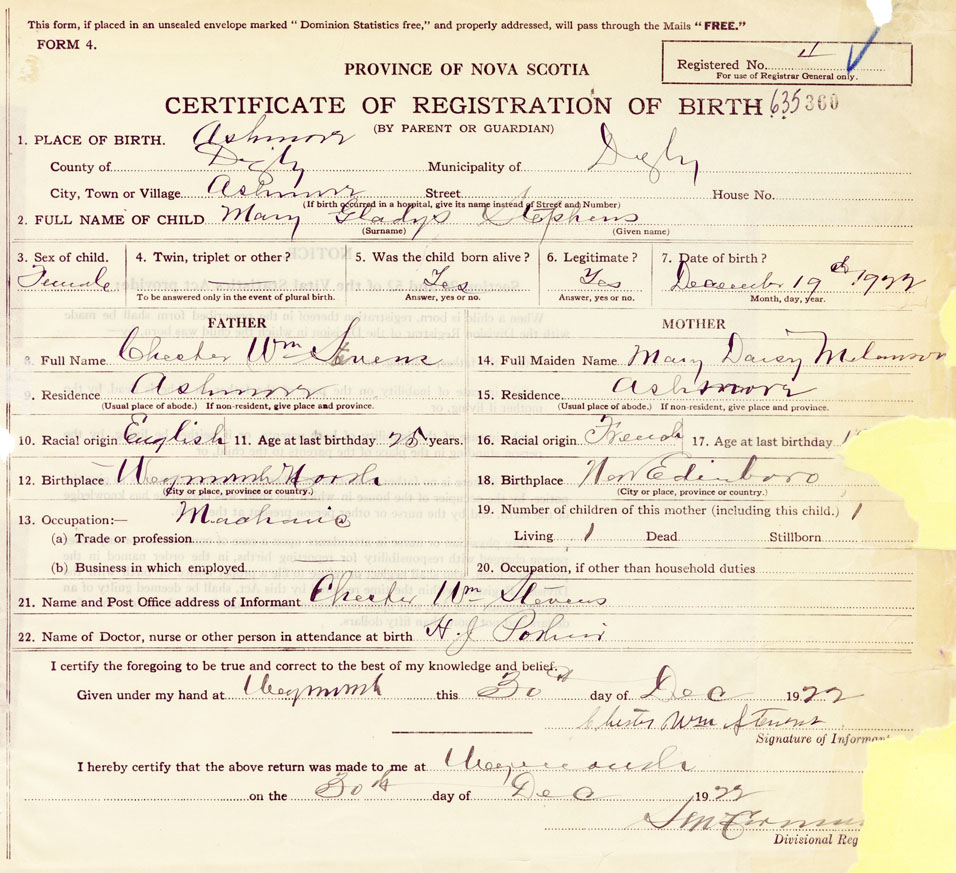 This form, if placed in an unsealed envelope marked "Dominion Statistics free," and properly addressed, will pass through the Mails "FREE."
FORM 4.
Registered No. 4
For use of Registrar General only.
PROVINCE OF NOVA SCOTIA
CERTIFICATE OF REGISTRATION OF BIRTH 635360
(BY PARENT OR GUARDIAN)
1. PLACE OF BIRTH. Ashmore
County of Digby Municipality of Digby
City, Town or Village Ashmore Street House No.
(If birth occurred in a hospital, give its name instead of Street and Number)
2. FULL NAME OF CHILD Mary Gladys Stephens
(Surname) (Given name)
3. Sex of child. 4. Twin, triplet or other? 5. Was the child born alive? 6. Legitimate? 7. Date of birth?
Female Yes Yes December 19th 1922
To be answered only in the event of plural birth. Answer, yes or no. Answer, yes or no. Month, day, year.
FATHER MOTHER
8. Full Name Chester Wm Stevens 14. Full Maiden Name Mary Daisy Melanson
9. Residence Ashmore 15. Residence Ashmore
(Usual place of abode.) If non-resident, give place and province. (Usual place of abode.) If non-resident, give place and province.
10. Racial origin English 11. Age at last birthday 25 years. 16. Racial origin French 17. Age at last birthday
12. Birthplace Weymouth North 18. Birthplace New Edinboro
(City or place, province or country.) (City or place, province or country.)
13. Occupation:— Machanic 19. Number of children of this mother (including this child.) 1
(a) Trade or profession Living 1 Dead Stillborn
(b) Business in which employed 20. Occupation, if other than household duties
21. Name and Post Office address of Informant Chester Wm Stevens
22. Name of Doctor, nurse or other person in attendance at birth H. J.
I certify the foregoing to be true and correct to the best of my knowledge and belief.
Given under my hand at Weymouth this 30th day of Dec 1922
Chester Wm Stevens
Signature of Informant
I hereby certify that the above return was made to me at Weymouth
on the 30th day of Dec 1922
Divisional Reg